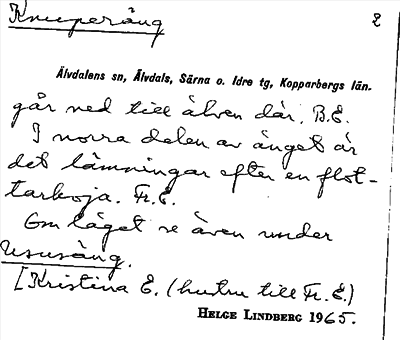 Knuperäng 2
Älvdalens sn, Älvdals, Särna o. Idre tg, Kopparbergs län.
går ned till älven där. B.E.
I norra delen av änget är
det lämningar efter en flot-
tarkoja. Fr.E.
Om läget se även under
Ususäng.
[Kristina E. (hustru till Fr. E.)
HELGE LINDBERG 1965.